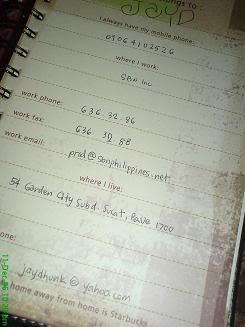 ngs to
JayD
I always have my mobile phone:
09064102526
where I work:
SBN Inc
work phone:
636.32.86
work fax:
636.32.88
work email:
prid@sonphilippines.net
where I live:
54 Garden City Subd. Sucat, P'que 1700
one:
jaydhunk@yahoo.com
home away from home is Starbucks